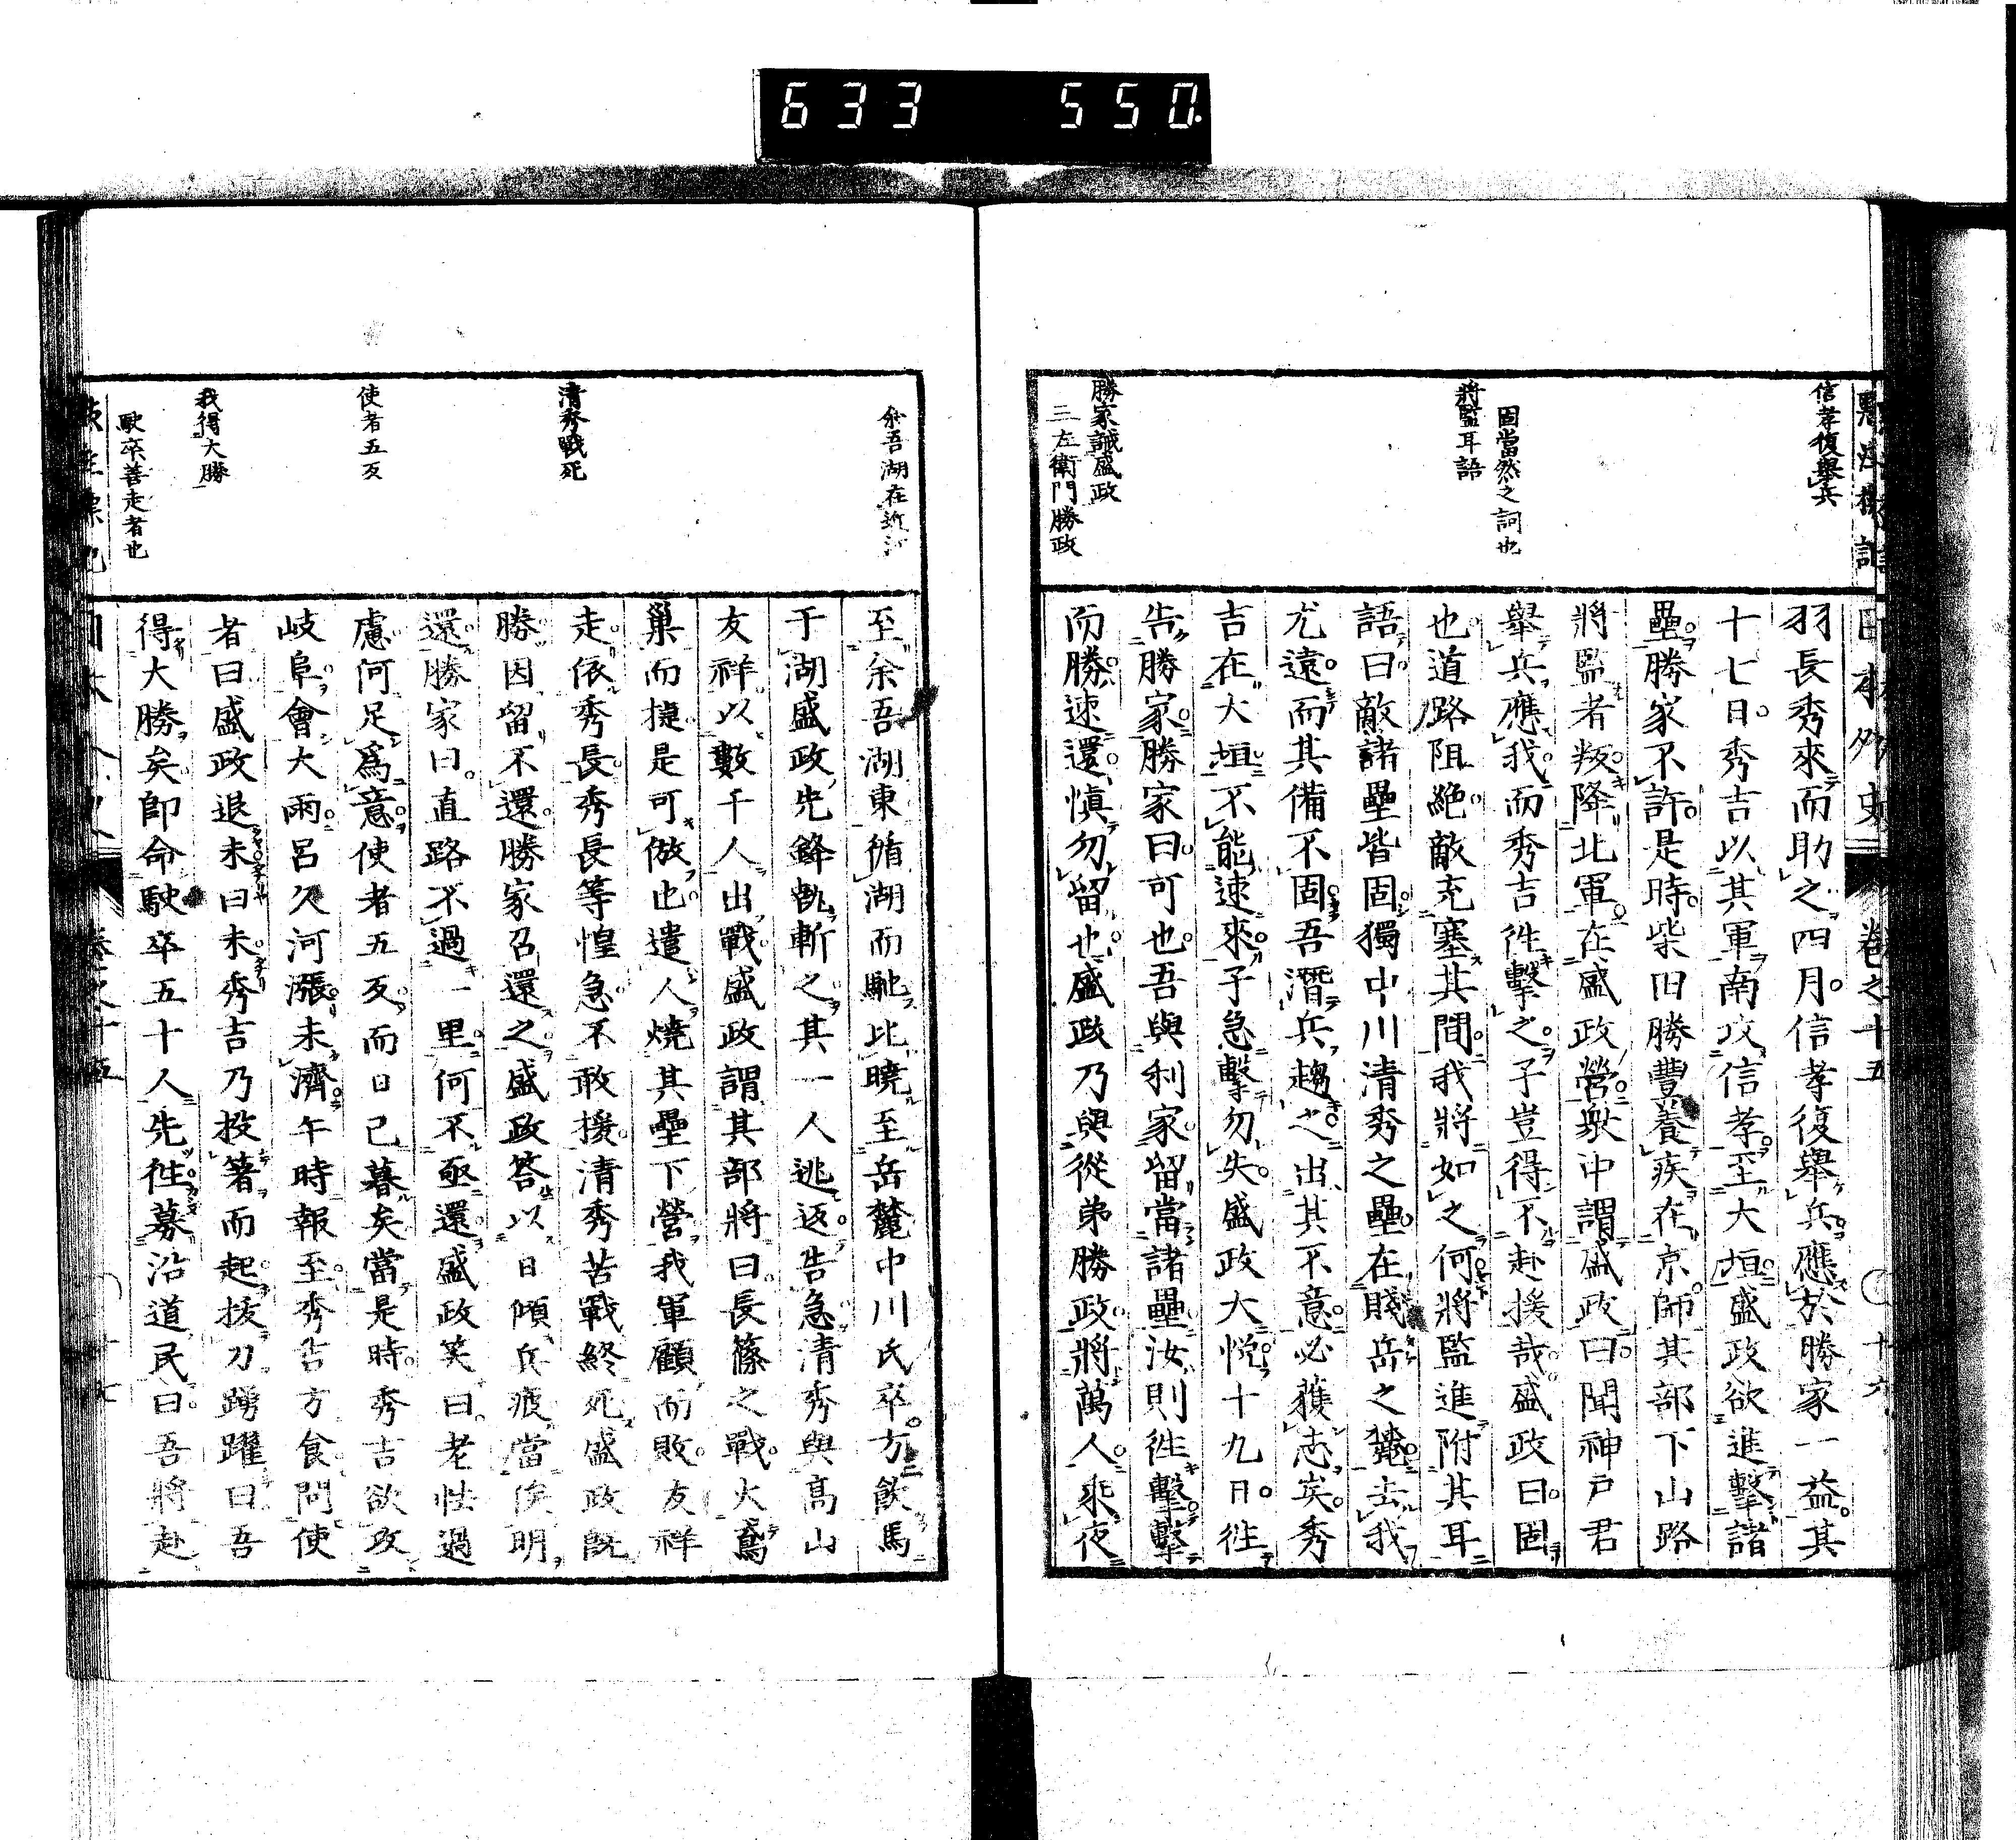 633 550.
信孝復舉兵
固當然之詞也
將監耳語
勝家誡盛政
三左衛門勝政
日本外史 卷之十五 十六
羽長秀來而助之四月信孝復舉兵應於勝家一益其
十七日秀吉以其軍南攻信孝至大垣盛政欲進擊諸
壘勝家不許是時柴田勝豐養疾在京師其部下山路
將監者叛降北軍在盛政營衆中謂盛政曰聞神戸君
舉兵應我而秀吉徃擊之子豈得不赴援哉盛政曰固
也道路阻絶敵充塞其間我將如之何將監進附其耳
語曰敵諸壘皆固獨中川清秀之壘在賤岳之麓去我
尤遠而其備不固吾潛兵趨之出其不意必獲志矣秀
吉在大垣不能速來子急擊勿失盛政大悦十九日徃
告勝家勝家曰可也吾與利家留當諸壘汝則徃擊擊
而勝速還愼勿留也盛政乃與從弟勝政將萬人乘夜
余吾湖在近江
清秀戰死
使者五反
我得大勝
駃卒善走者也
至余吾湖東循湖而馳比曉至岳麓中川氏卒方飲馬
于湖盛政先鋒執斬之其一人逃返告急清秀與高山
友祥以數千人出戰盛政謂其部將曰長篠之戰火鳶
巢而捷是可倣也遣人燒其壘下營我軍顧而敗友祥
走依秀長秀長等惶急不敢援清秀苦戰終死盛政既
勝因留不還勝家召還之盛政答以日傾兵疲當俟明
還勝家曰直路不過一里何不亟還盛政笑曰老怯過
慮何足爲意使者五反而日已暮矣當是時秀吉欲攻
岐阜會大雨呂久河漲未濟午時報至秀吉方食問使
者曰盛政退未曰未秀吉乃投箸而起拔刀踴躍曰吾
得大勝矣即命駃卒五十人先徃募沿道民曰吾將赴